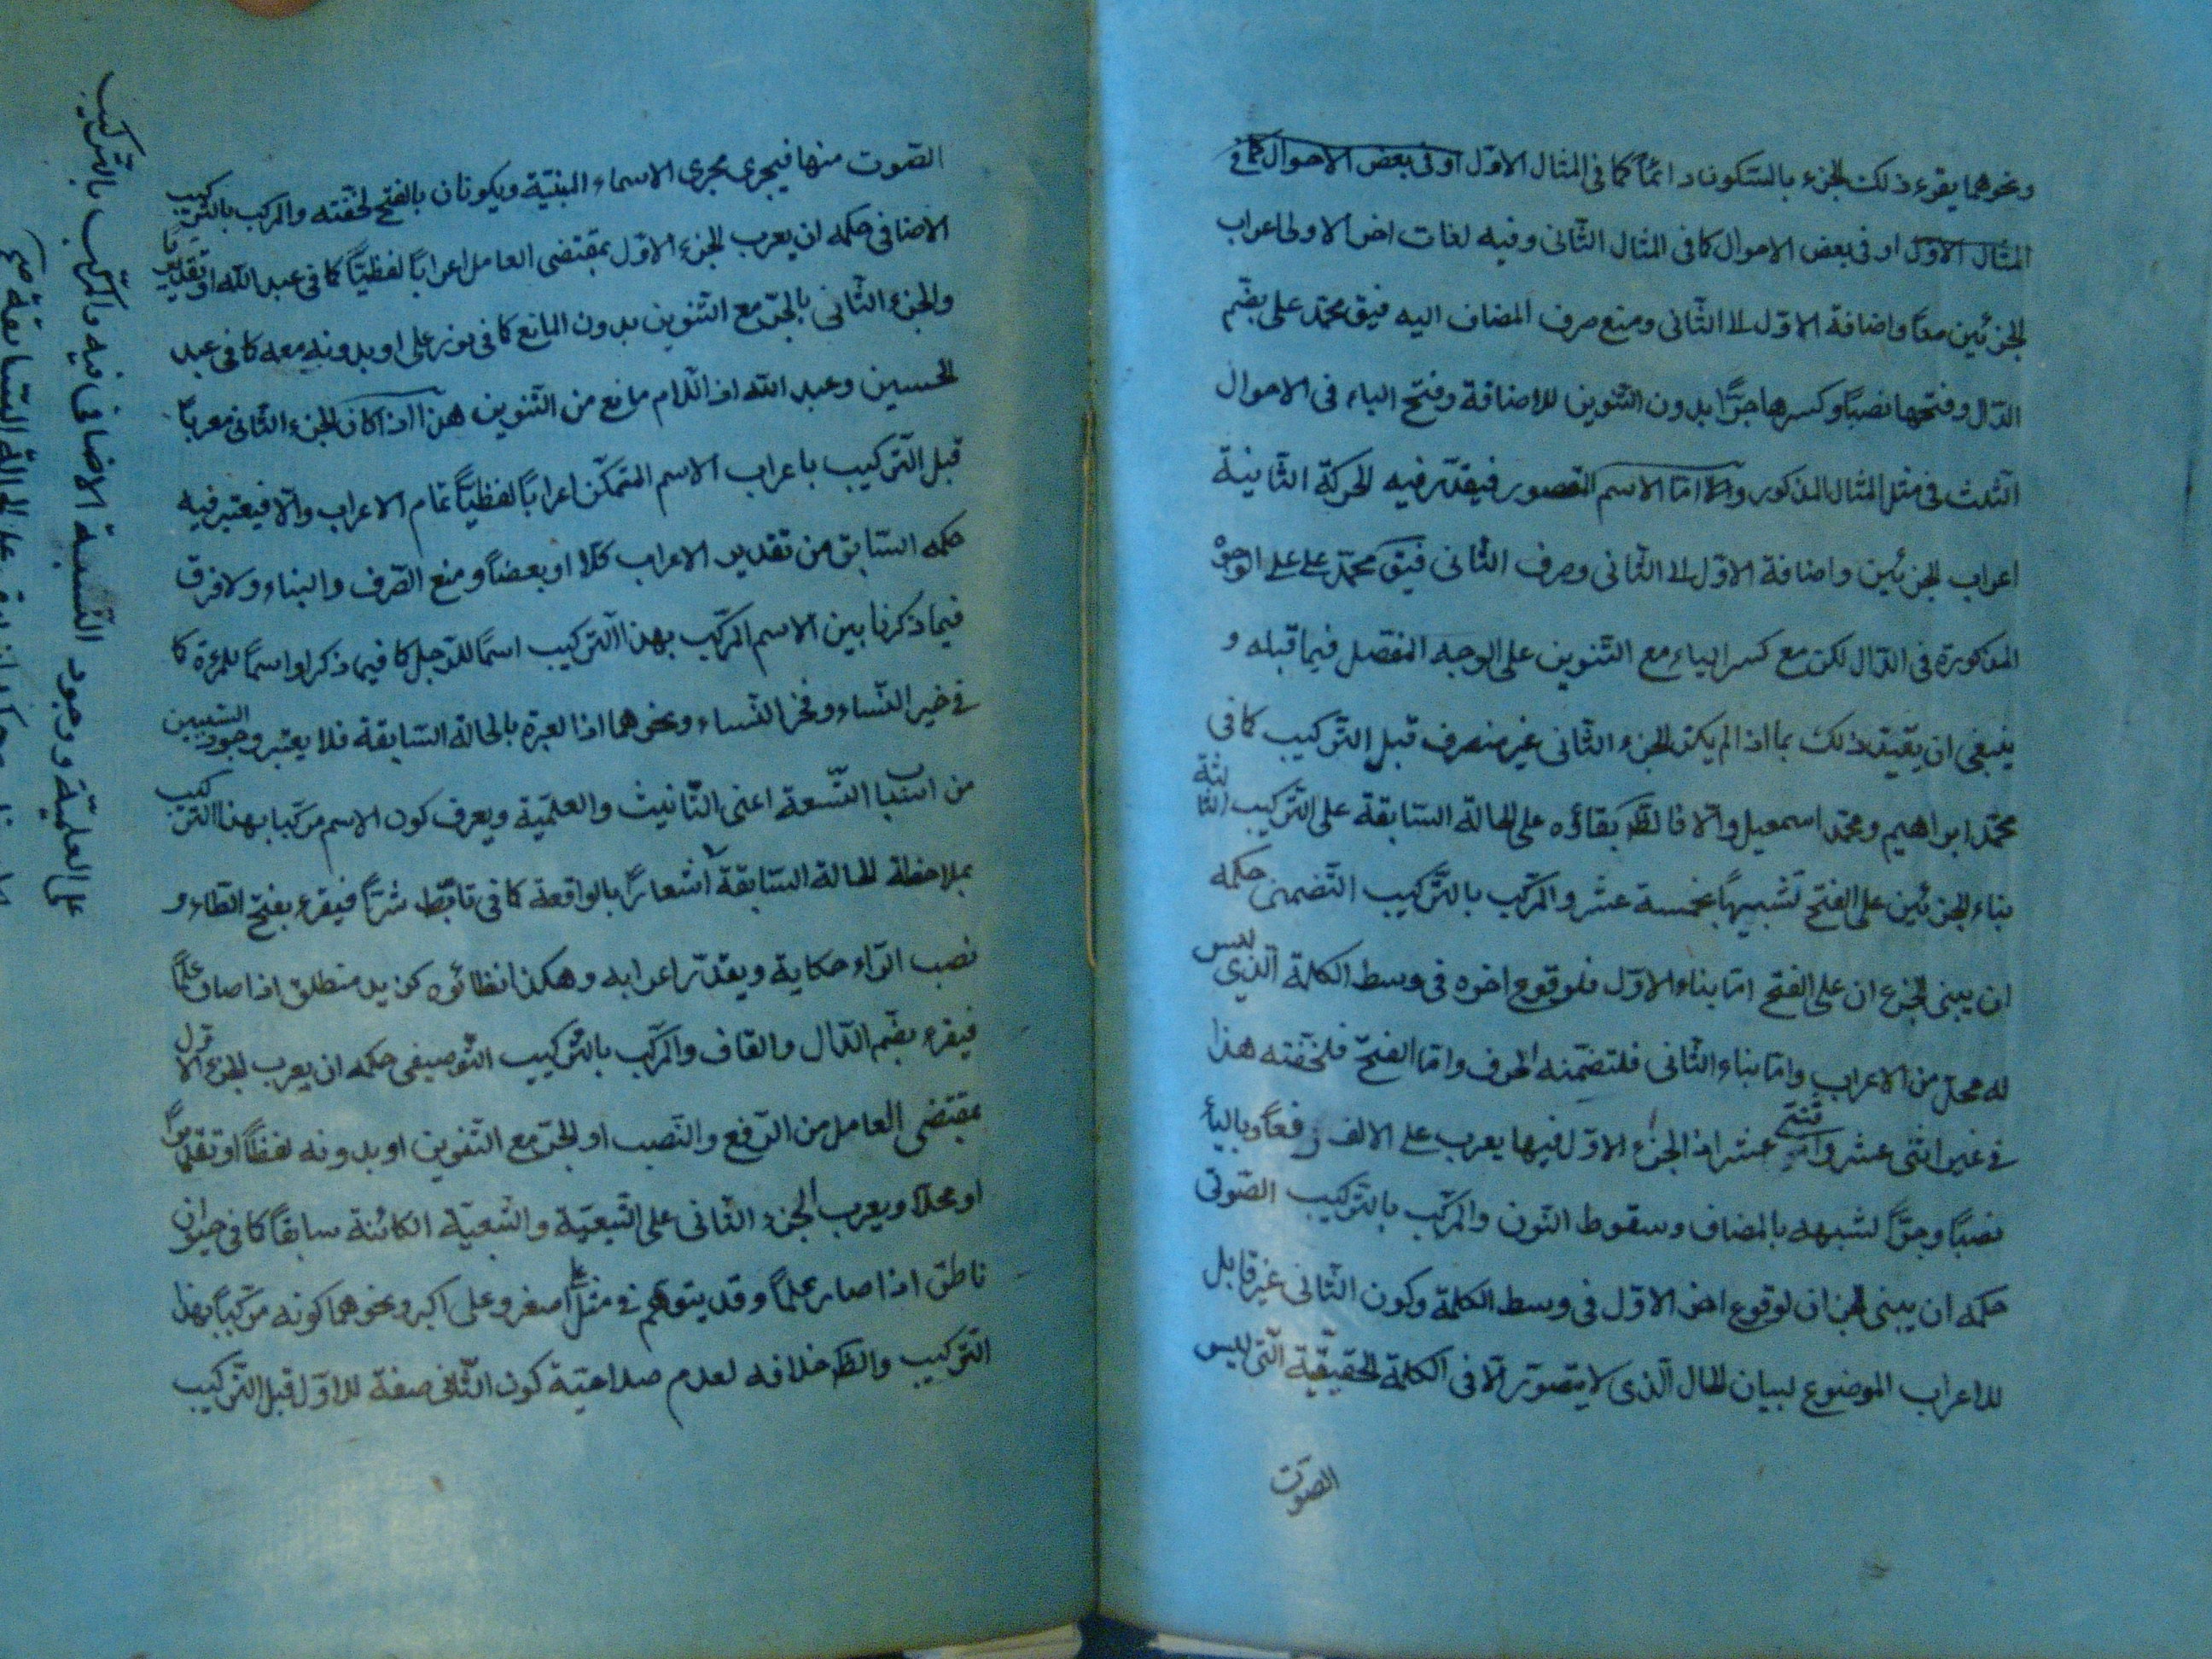 ونحوهما يقرء ذلك الجزء بالسكون دائماً كما فى المثال الاول او فى بعض الاحوال كما فى
المثال الاول او فى بعض الاحوال كما فى المثال الثانى وفيه لغات اخر الاولى اعراب
الجزئين معاً واضافة الاول الى الثانى ومنع صرف المضاف اليه فيق محمد على بضم
الدال وفتحها نصباً وكسرها جرّاً بدون التنوين للاضافة وفتح الياء فى الاحوال
الثلث فى مثل المثال المذكور والا اما الاسم المقصور فيقدر فيه الحركة الثانية
اعراب الجزئين واضافة الاول الى الثانى وصرف الثانى فيق محمد على على الوجوه
المذكورة فى الدال لكن مع كسر الياء مع التنوين على الوجه المفصل فيما قبله و
ينبغى ان يقيد ذلك بما اذا لم يكن الجزء الثانى غير منصرف قبل التركيب كما فى
محمد ابراهيم ومحمد اسمعيل والّا فالظ بقائه على الحالة السابقة على التركيب الثالثة
بناء الجزئين على الفتح تشبيهاً بخمسة عشر والمركب بالتركيب التضمنى حكمه
ان يبنى الجزء ان على الفتح امّا بناء الاول فلوقوع اخره فى وسط الكلمة الذى ليس
له محل من الاعراب وامّا بناء الثانى فلتضمنه الحرف وامّا الفتح فلخفته هذا
فى غير اثنى عشر و ثنتى عشر اذ الجزء الاول فيها يعرب على الالف رفعاً وبالياء
نصباً وجرّاً لشبهه بالمضاف وسقوط النون والمركب بالتركيب الصوتى
حكمه ان يبنى الجزان لوقوع اخر الاول فى وسط الكلمة وكون الثانى غير قابل
للاعراب الموضوع لبيان الحال الذى لا يتصور الّا فى الكلمة الحقيقية التى ليس
الصوت
الصوت منها فيجرى مجرى الاسماء المبنية ويكونان بالفتح لخفته والمركب بالتركيب
الاضافى حكمه ان يعرب الجزء الاول بمقتضى العامل اعراباً لفظيّاً كما فى عبد الله او تقديرياً
والجزء الثانى بالجر مع التنوين بدون المانع كما فى نور على او بدونه معه كما فى عبد
الحسين وعبد الله اذ اللام مانع من التنوين هذا اذا كان الجزء الثانى معرباً
قبل التركيب باعراب الاسم المتمكن اعراباً لفظيّاً تمام الاعراب والّا فيعتبر فيه
حكمه السابق من تقدير الاعراب كلّا او بعضاً ومنع الصرف والبناء ولا فرق
فيما ذكرنا بين الاسم المركب بهذا التركيب اسماً للرجل كما فيما ذكر او اسماً للمرءة كما
فى خير النساء وفخر النساء ونحوهما اذ العبرة بالحالة السابقة فلا يعتبر وجود السببين
من اسباب التسعة اعنى التانيث والعلمية ويعرف كون الاسم مركبا بهذا التركيب
بملاحظة الحالة السابقة اشعاراً بالواقعة كما فى تابّط شرّاً فيقرء بفتح الطاء و
نصب الراء حكاية ويقدر اعرابه وهكذا نظائره كزيد منطلق اذا صار علماً
فيقرء بضم الدال والقاف والمركب بالتركيب التوصيفى حكمه ان يعرب الجزء الاول
بمقتضى العامل من الرفع والنصب او الجر مع التنوين او بدونه لفظاً او تقديراً
او محلّاً ويعرب الجزء الثانى على التبعية والتبعية الكائنة سابقاً كما فى حيوان
ناطق اذا صار علماً وقد يتوهم فى مثل على اصغر وعلى اكبر ونحوهما كونه مركباً بهذا
التركيب والظ خلافه لعدم صلاحية كون الثانى صفة للاول قبل التركيب
على العلمية ووجود النسبة الاضافى فيه والمركب بالتركيب
على الحالة السابقة صح